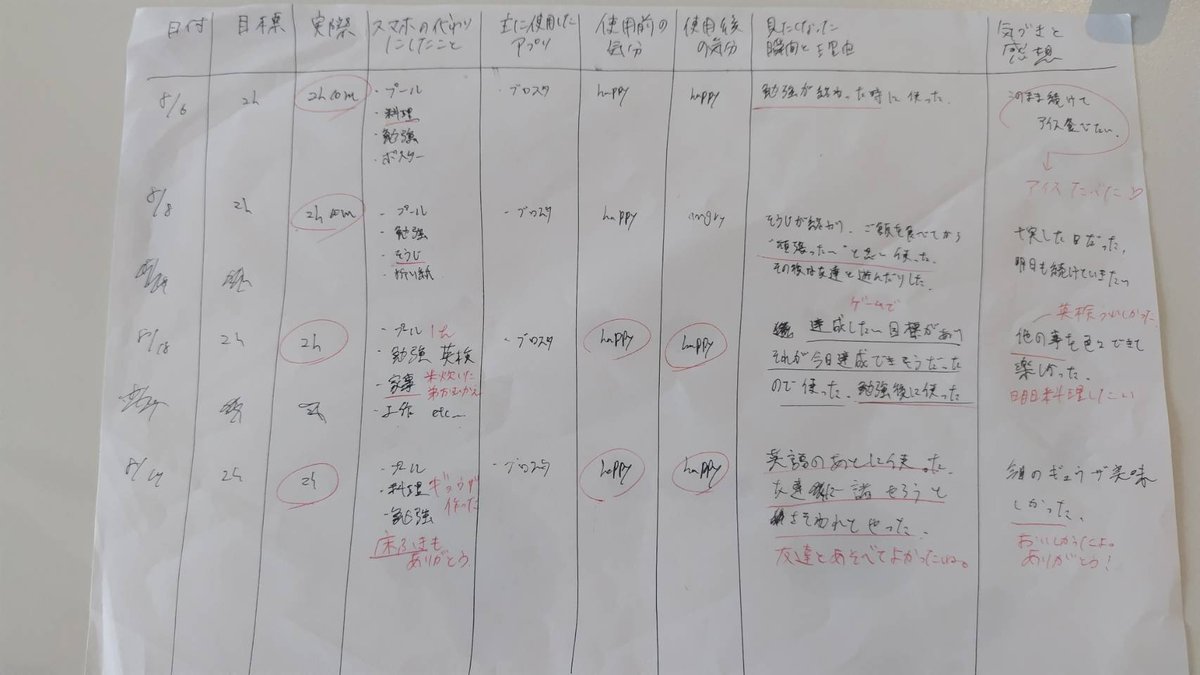 日付 目標 実際 スマホの代わりにしたこと 主に使用したアプリ 使用前の気分 使用後の気分 見たくなった瞬間と理由 気づきと感想
8/6 2h 2h10m ・プール ・ブロスタ happy happy 勉強が終わった時に使った。 このまま続けて
・料理 アイス食べたい。
・勉強
・ポスター
アイスたべた
8/8 2h 2h10m ・プール ・ブロスタ happy angry そうじが終わり、ご飯を食べてから
・勉強 "頑張ったー"と思い使った。 充実した日だった。
・そうじ その後は友達と遊んだりした。 明日も続けていきたい
・折り紙
ゲームで
英検うれしかった
8/18 2h 2h ・プール ・ブロスタ happy happy 達成したい目標があり 他の事も色々できて
・勉強 英検 それが今日達成できそうだった 楽しかった。
・家事 米炊いた ので使った。勉強後に使った 明日料理したい
・工作 etc
8/19 2h 2h ・プール ・ブロスタ happy happy 英語のあとに使った。
・料理 ギョウザ作った 友達に諸 やろうと のギョウザ美味
・勉強 さそわれてやった。 しかった。
床ふきもありがとう 友達とあそべてよかったね。 おいしかったよ。
ありがとう!